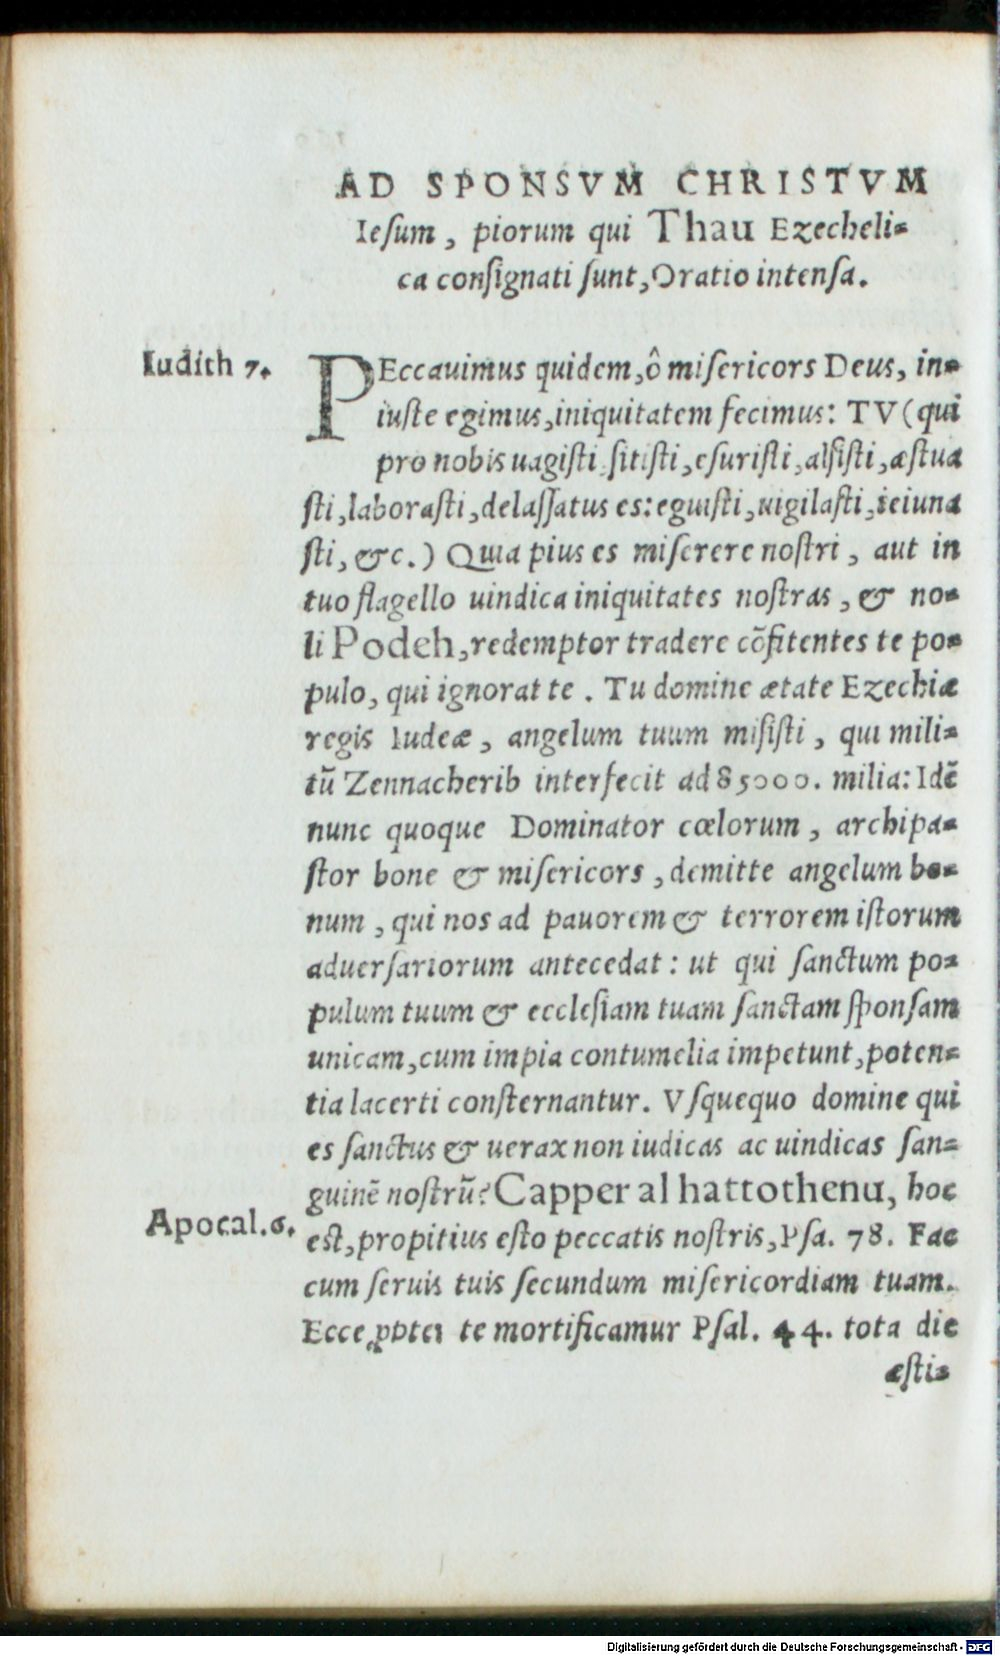 AD SPONSVM CHRISTVM
Iesum, piorum qui Thau Ezecheli-
ca consignati sunt, Oratio intensa.
Iudith 7.
PEccauimus quidem, ô misericors Deus, in-
iuste egimus, iniquitatem fecimus: TV (qui
pro nobis uagisti, sitisti, esuristi, alsisti, æstua
sti, laborasti, delassatus es: eguisti, uigilasti, ieiuna
sti, &c.) Quia pius es miserere nostri, aut in
tuo flagello uindica iniquitates nostras, & no-
li Podeh, redemptor tradere cõfitentes te po-
pulo, qui ignorat te. Tu domine ætate Ezechiæ
regis Iudeæ, angelum tuum misisti, qui mili-
tũ Zennacherib interfecit ad 85000. milia: Idẽ
nunc quoque Dominator cœlorum, archipa-
stor bone & misericors, demitte angelum bo-
num, qui nos ad pauorem & terrorem istorum
aduersariorum antecedat: ut qui sanctum po-
pulum tuum & ecclesiam tuam sanctam sponsam
unicam, cum impia contumelia impetunt, poten-
tia lacerti consternantur. Vsquequo domine qui
es sanctus & uerax non iudicas ac uindicas san-
guinẽ nostrũ? Capper al hattothenu, hoc
Apocal. 6.
est, propitius esto peccatis nostris, Psa. 78. Fac
cum seruis tuis secundum misericordiam tuam.
Ecce ꝓpter te mortificamur Psal. 44. tota die
æsti-
Digitalisierung gefördert durch die Deutsche Forschungsgemeinschaft - DFG